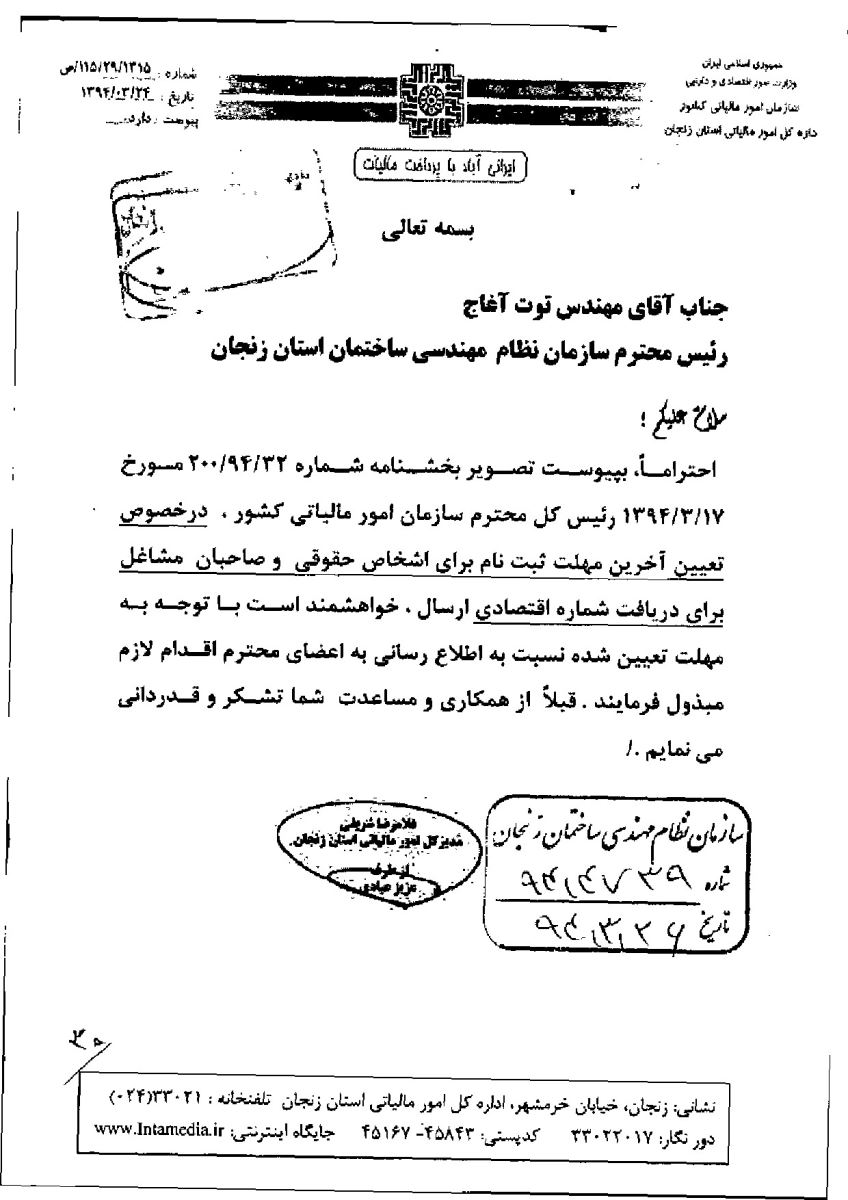 جمهوری اسلامی ایران
وزارت امور اقتصادی و دارایی
سازمان امور مالیاتی کشور
اداره کل امور مالیاتی استان زنجان
شماره : ۱۱۵/۲۹/۱۳۱۵/ص
تاریخ : ۱۳۹۴/۰۳/۲۴
پیوست : دارد
ایرانی آباد با پرداخت مالیات
بسمه تعالی
جناب آقای مهندس توت آغاج
رئیس محترم سازمان نظام مهندسی ساختمان استان زنجان
سلام علیکم ؛
احتراماً، بپیوست تصویر بخشنامه شماره ۲۰۰/۹۴/۳۲ مورخ
۱۳۹۴/۳/۱۷ رئیس کل محترم سازمان امور مالیاتی کشور ، درخصوص
تعیین آخرین مهلت ثبت نام برای اشخاص حقوقی و صاحبان مشاغل
برای دریافت شماره اقتصادی ارسال ، خواهشمند است با توجه به
مهلت تعیین شده نسبت به اطلاع رسانی به اعضای محترم اقدام لازم
مبذول فرمایند . قبلاً از همکاری و مساعدت شما تشکر و قدردانی
می نمایم ./
غلامرضا شریفی
مدیرکل امور مالیاتی استان زنجان
از طرف
عزیز عبادی
سازمان نظام مهندسی ساختمان زنجان
شماره ۹۴/۴۷۳۹
تاریخ ۹۴/۳/۲۶
نشانی: زنجان، خیابان خرمشهر، اداره کل امور مالیاتی استان زنجان تلفنخانه : ۳۳۰۲۱(۰۲۴)
دور نگار: ۳۳۰۲۲۰۱۷ کدپستی: ۴۵۸۴۳- ۴۵۱۶۷ جایگاه اینترنتی: www.Intamedia.ir